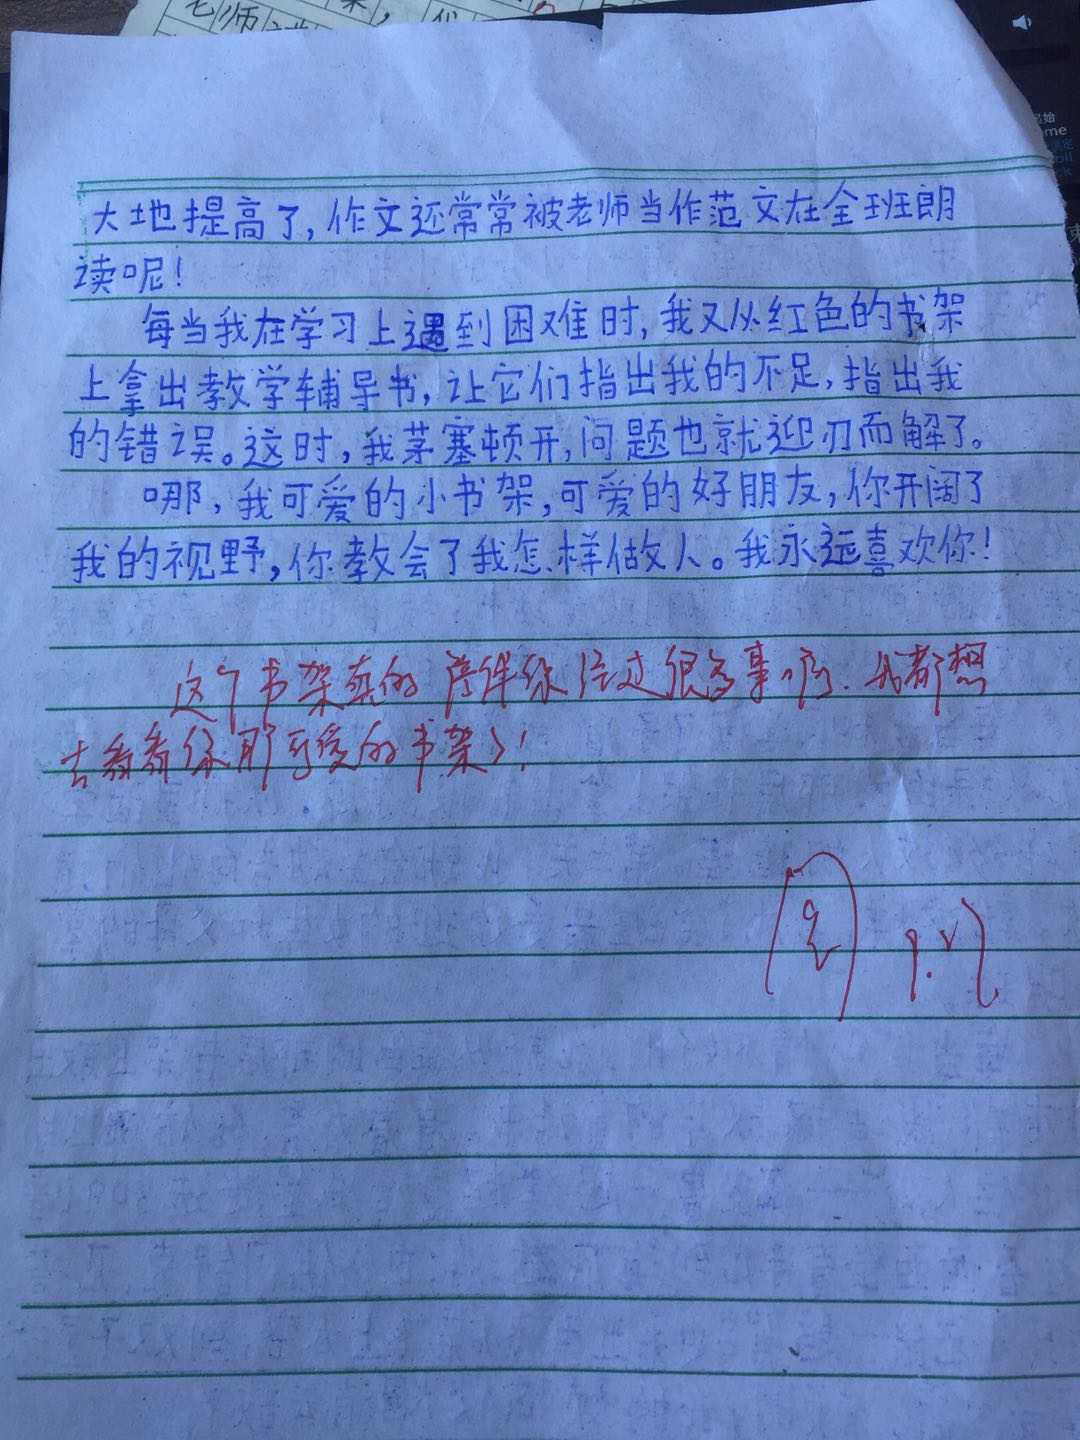 大地提高了，作文还常常被老师当作范文在全班朗
读呢！
每当我在学习上遇到困难时，我又从红色的书架
上拿出教学辅导书，让它们指出我的不足，指出我
的错误。这时，我茅塞顿开，问题也就迎刃而解了。
哪，我可爱的小书架，可爱的好朋友，你开阔了
我的视野，你教会了我怎样做人。我永远喜欢你！
这个书架真的陪伴你经过很多事啊，我都想
去看看你那可爱的书架了！